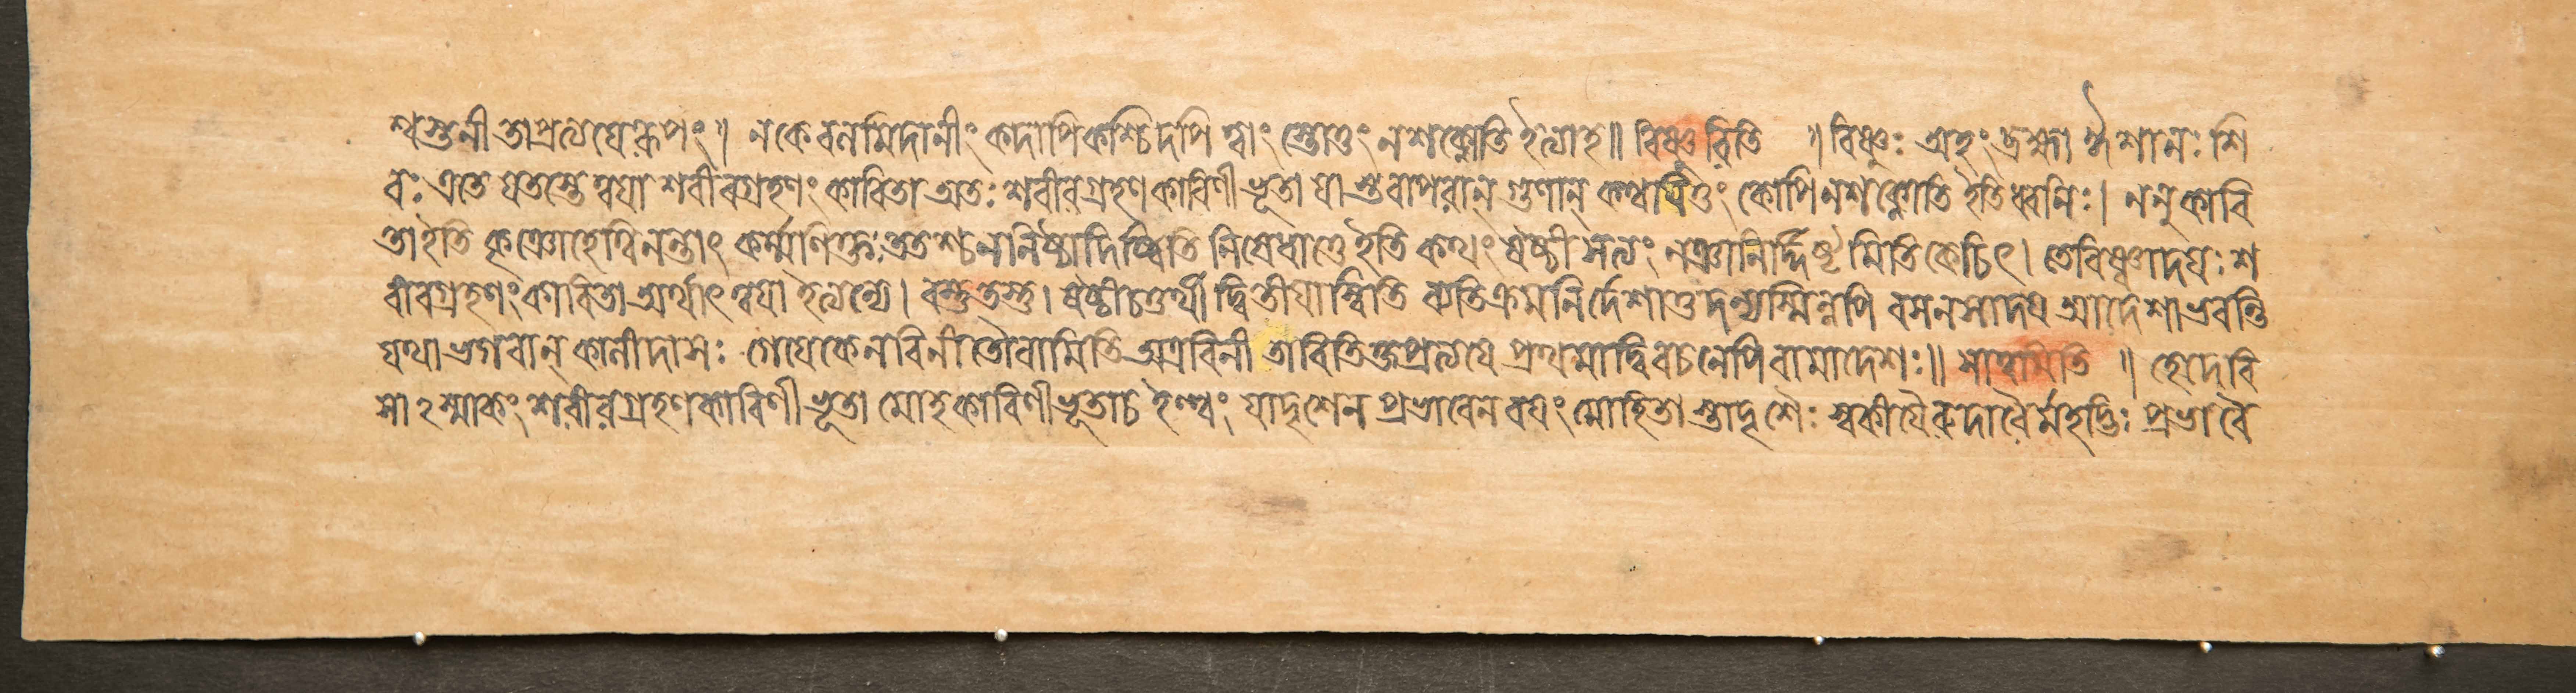 শ্বস্তুনীতাপ্রলয়েক্বপং॥ নকেবলমিদানীং কদাপিকশ্চিদপি ত্বাং স্তোতুং নশক্নোতি ইত্যাহ॥ বিষ্ণুরিতি ॥ বিষ্ণুঃ অহং ব্রহ্মা ঈশানঃ শি
বঃ এতে যতস্তে ত্বয়া শরীরগ্রহণং কারিতা অতঃ শরীরগ্রহণকারিণীভূতা যা স্তবাপরান্ গুণান্ কথয়িতুং কোপি নশক্নোতি ইতিধ্বনিঃ। ননু কারি
তাইতি কৃঞোহেত্বিনন্তাৎ কর্ম্মণিক্তঃ ততশ্চ ননিষ্ঠাদিষ্বিতি নিষেধাত্তে ইতি কথং ষষ্ঠী সত্যং নঞানির্দ্দিষ্টমিতি কেচিৎ। তেবিষ্ণ্বাদয়ঃ শ
রীরগ্রহণং কারিতা অর্থাৎ ত্বয়া ইত্যন্যে। বস্তুতস্তু। ষষ্ঠীচতুর্থী দ্বিতীয়াস্বিতি ব্যতিক্রমনির্দেশাত্তদন্যস্মিন্নপি বসনসাদয় আদেশাভবন্তি
যথা ভগবান্ কালীদাসঃ গেয়েকেনবিনীতৌবামিতি অত্রবিনীতাবিতিক্তপ্রত্যয়ে প্রথমাদ্বিবচনেপি বামাদেশঃ॥ সাত্বমিতি ॥ হেদেবি
সাঽস্মাকং শরীরগ্রহণকারিণীভূতা মোহকারিণীভূতাচ ইত্থং যাদৃশেন প্রভাবেন বয়ং মোহিতা স্তাদৃশৈঃ স্বকীয়ৈরুদারৈর্মহদ্ভিঃ প্রভাবৈ